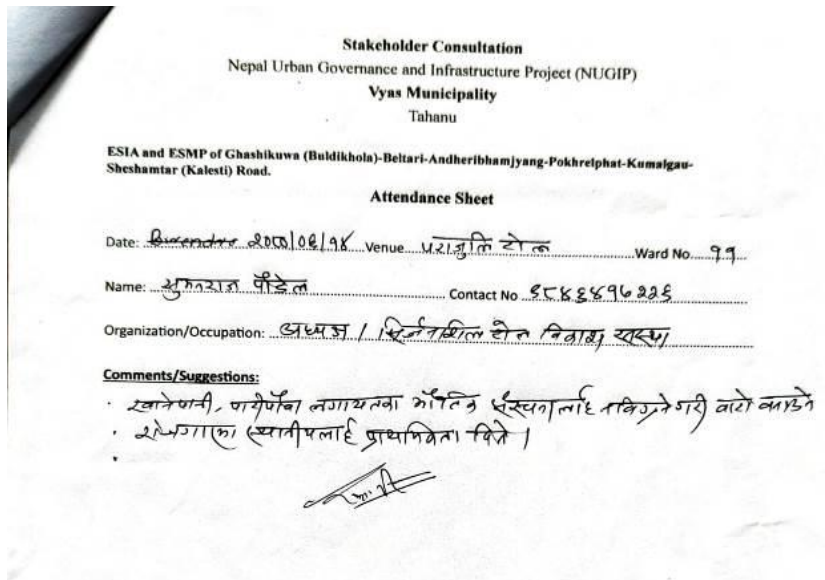 Stakeholder Consultation
Nepal Urban Governance and Infrastructure Project (NUGIP)
Vyas Municipality
Tahanu
ESIA and ESMP of Ghashikuwa (Buldikhola)-Beltari-Andheribhamjyang-Pokhrelphat-Kumalgau-
Sheshamtar (Kalesti) Road.
Attendance Sheet
Date: २०८०/०६/१४ Venue पराजुलि टोल Ward No. ११
Name: सुमनराज पौडेल Contact No
Organization/Occupation: अध्यक्ष / टोल विकाश संस्था
Comments/Suggestions:
• खानेपानी, लगायतका भौतिक संरचनालाई नबिग्रनेगरी बाटो बनाउने
• स्थानीयलाई प्राथमिकता दिने ।
•